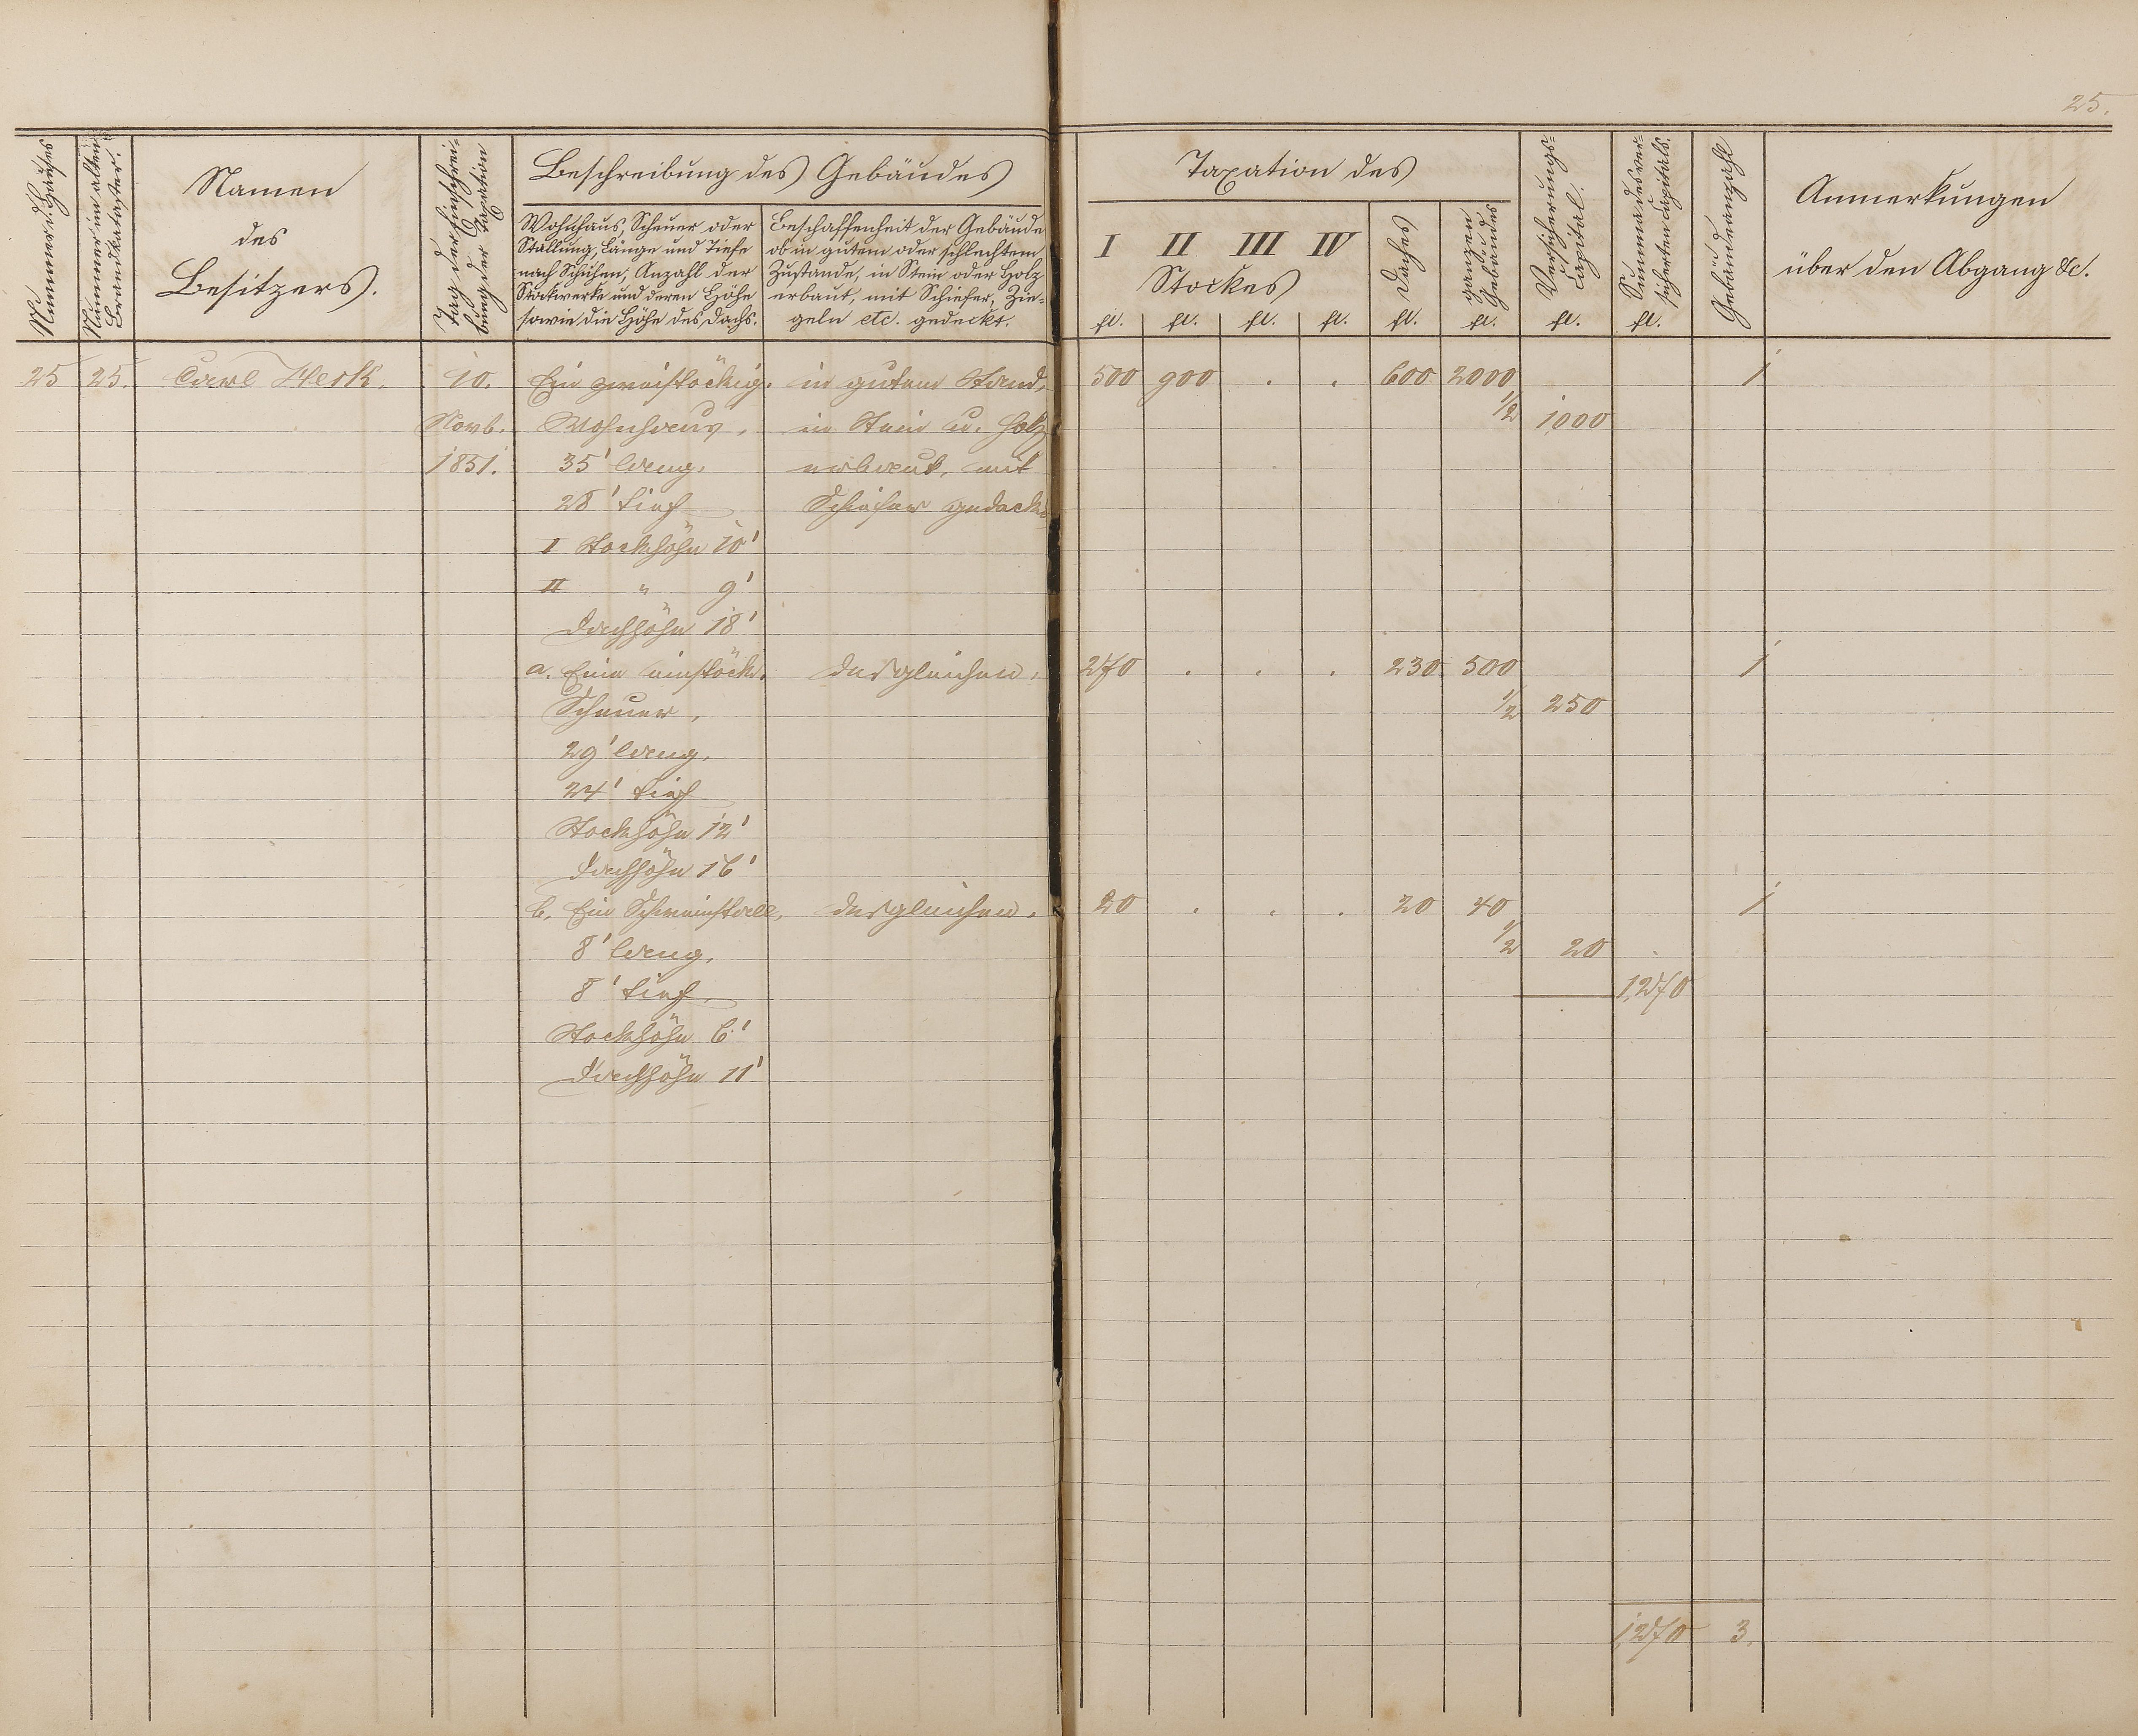 25.
Nummer d. Hauses
Nummer im alten Brandkataster.
Namen
des
Besitzers.
Tag der Einschrei-
bung der Taxation
Beschreibung des Gebäudes
Wohnhaus, Scheuer oder
Stallung, Länge und Tiefe
nach Schuhen, Anzahl der
Stockwerke und deren Höhe
sowie die Höhe des Dachs.
Beschaffenheit der Gebäude
ob in gutem oder schlechtem
Zustande, in Stein oder Holz
erbaut, mit Schiefer, Zie-
geln etc. gedeckt.
Taxation des
I II III IV
Stockes
Daches
ganzen Gebäudes
Versicherungs-
Capital.
Summa des ver-
sicherten Capitals.
Gebäudeanzahl
Anmerkungen
über den Abgang &c.
fl. fl. fl. fl. fl. fl. fl. fl.
25 25. Carl Herk. 10. Ein zweistöckig. in gutem Stand, 500 900 . . 600 2000 1
Novb. Wohnhaus, in Stein u. Holz 1/2 1000
1851. 35' lang, erbaut, mit
28' tief Schiefer gedeckt
I Stockhöhe 10'
II " 9'
Dachhöhe 18'
a. Eine einstöck. desgleichen, 270 . . . 230 500 1
Scheuer, 1/2 250
29' lang,
24' tief
Stockhöhe 12'
Dachhöhe 16'
b. Ein Schweinstall, desgleichen. 20 . . . 20 40 1
8' lang, 1/2 20
8' tief, 1,270
Stockhöhe 6'
Dachhöhe 11'
1,270 3.